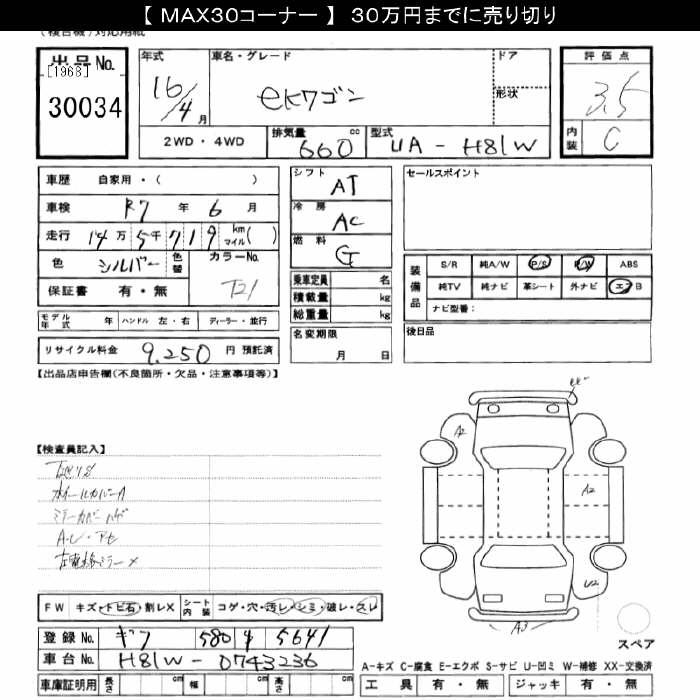 【 MAX30コーナー 】 30万円までに売り切り
(複合機)対応用紙
出品No. 年式 車名・グレード ドア 評価点
[1968] 16/4 月 ekワゴン 形状 3.5
30034
2WD・4WD 排気量 660 cc 型式 UA - H81W 内装 C
車歴 自家用・( ) シフト AT セールスポイント
車検 R7 年 6 月 冷房 AC
走行 14万5千719 km マイル( ) 燃料 G
色 シルバー 色替 カラーNo. T21 装備品 S/R 純A/W P/S P/W ABS
保証書 有・無 乗車定員 名 純TV 純ナビ 革シート 外ナビ エアB
積載量 kg ナビ型番:
モデル年式 年 ハンドル 左・右 ディーラー・並行 総重量 kg
リサイクル料金 9,250 円 預託済 名変期限 月 日 後日品
【出品店申告欄(不良箇所・欠品・注意事項等)】
A2
【検査員記入】
A2
ホイールカバーA
ミラーカバーハゲ
左電格ミラー×
U2
FW キズ・トビ石・割レX シート内装 コゲ・穴・汚レ・シミ・破レ・スレ
A3
登録No. ギフ 580 す 5641 スペア
車台No. H81W - 0743236 A-キズ C-腐食 E-エクボ S-サビ U-凹ミ W-補修 XX-交換済
車庫証明用 長さ cm 幅 cm 高さ cm 工具 有・無 ジャッキ 有・無